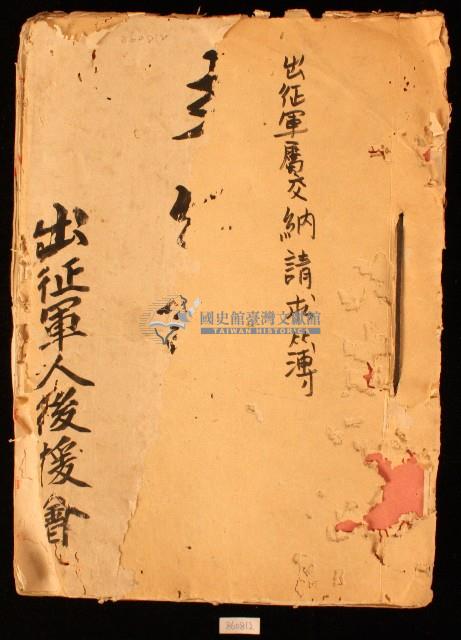 出征軍屬交納請求簿
出征軍人後援會
國史館臺灣文獻館
TAIWAN HISTORICA
860812
860812